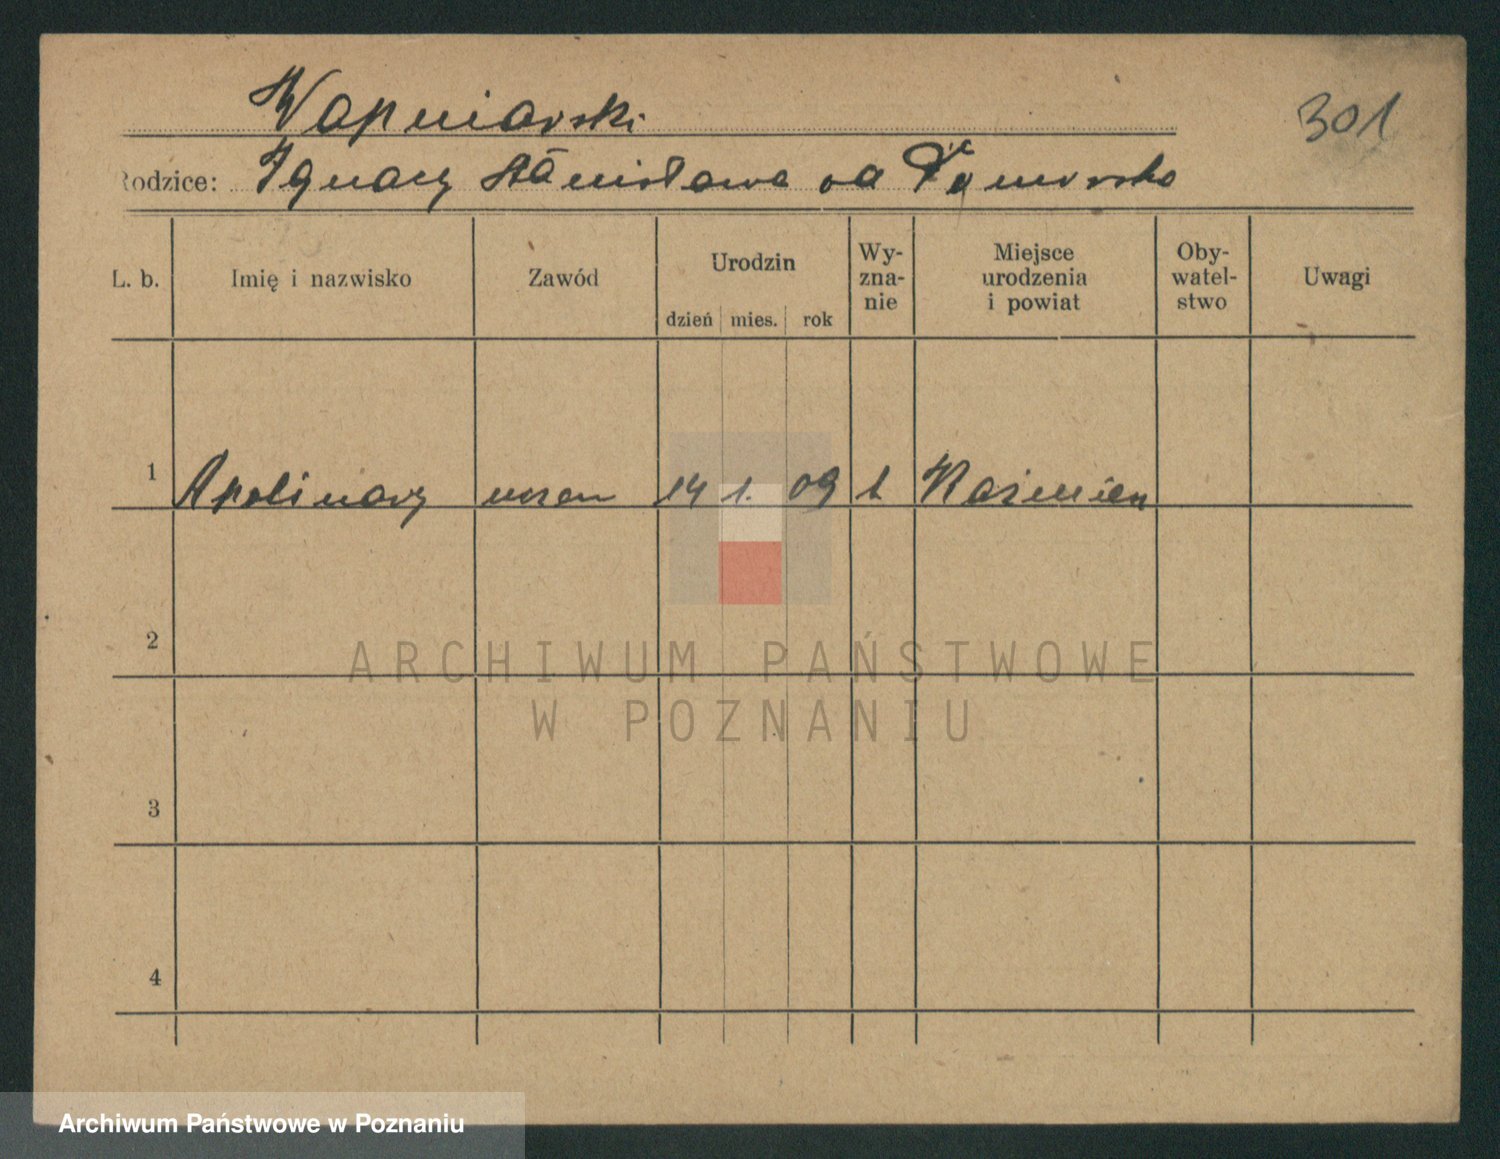 Wapniarski
301
Rodzice: Ignacy Stanisława
L. b. Imię i nazwisko Zawód Urodzin dzień mies. rok Wy-zna-nie Miejsce urodzenia i powiat Oby-watel-stwo Uwagi
1 Apolinary uczeń 14 1. 09 Kaźmierz
2
ARCHIWUM PAŃSTWOWE
W POZNANIU
3
4
Archiwum Państwowe w Poznaniu